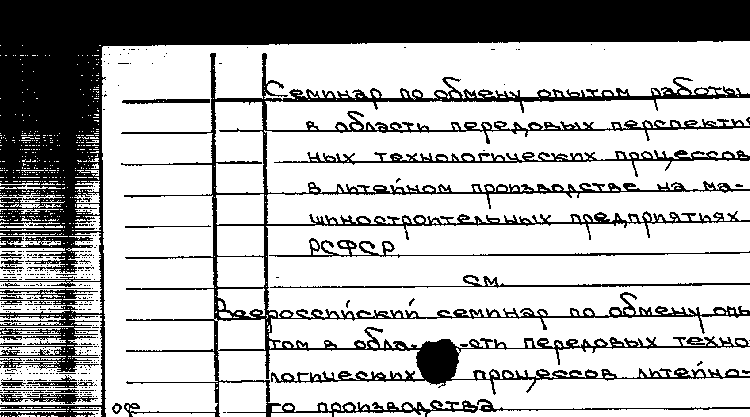 Семинар по обмену опытом работы
в области передовых перспектив
ных технологических процессов
в литейном производстве на ма-
шиностроительных предприятиях
РСФСР.
см.
Всероссийский семинар по обмену опы
том в обла- -сти передовых техно
логических процессов литейно-
го производства.